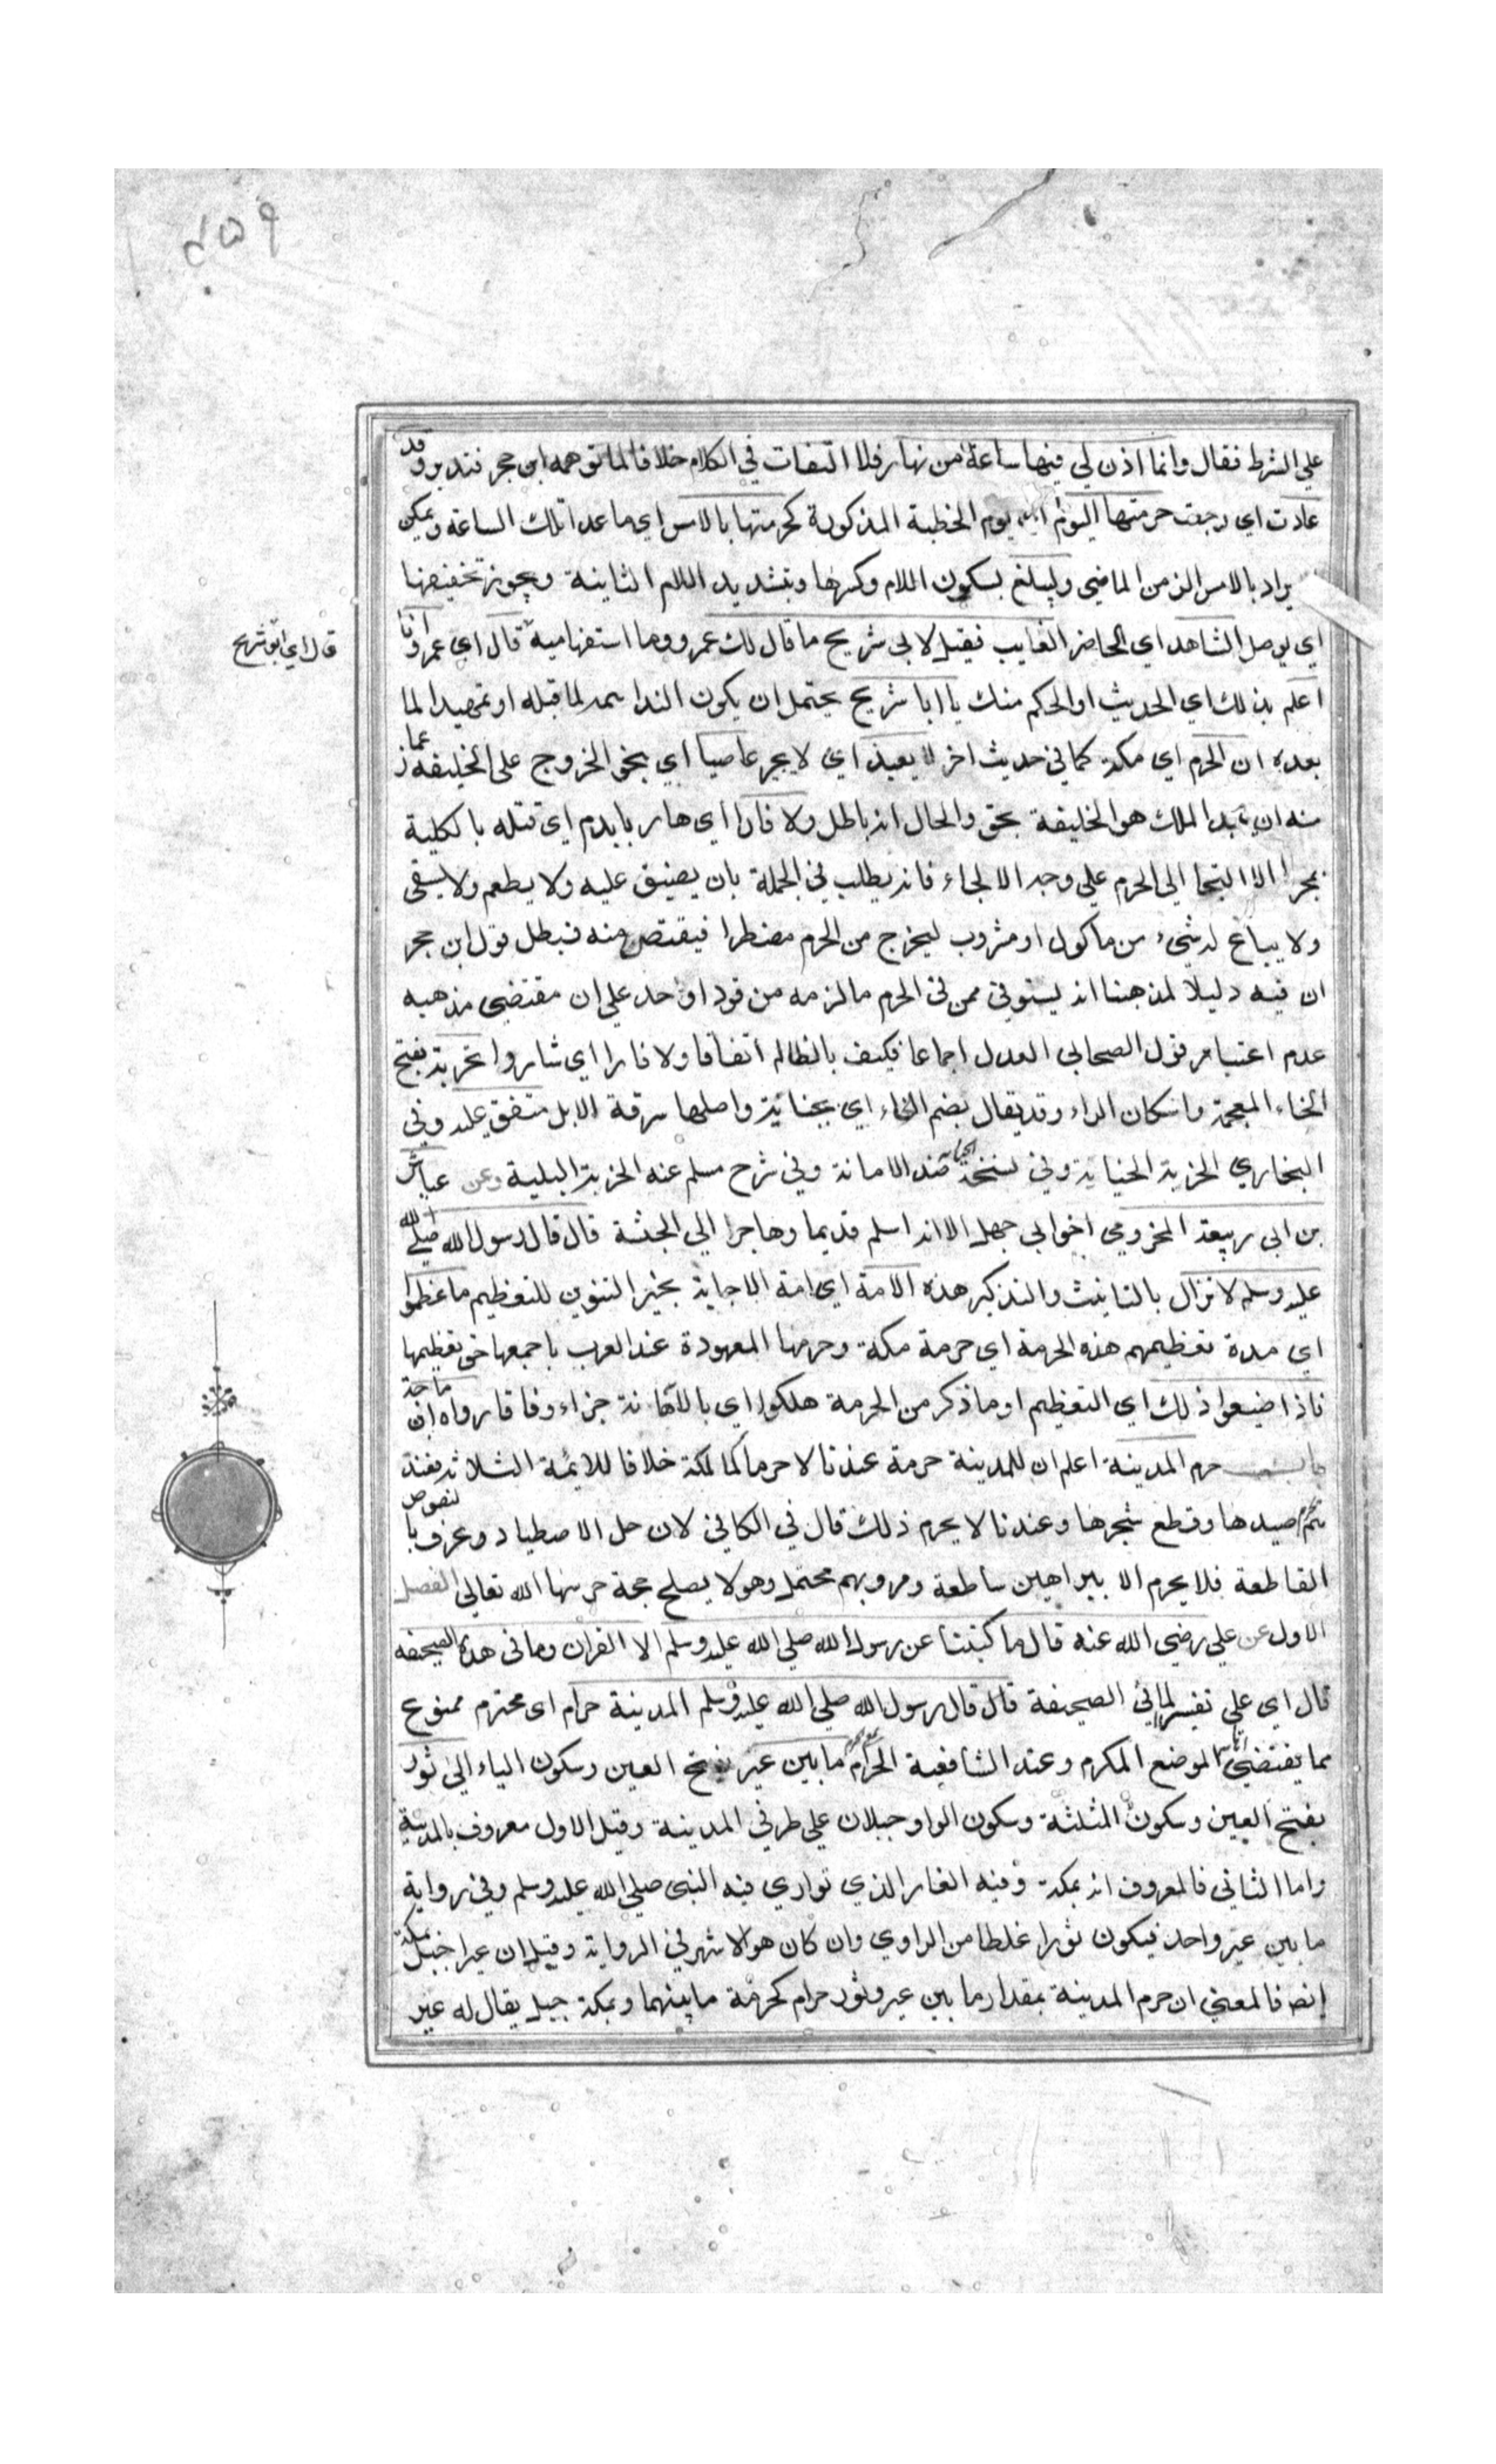 ٤٥٩
علي الشرط فقال وانما اذن لي فيها ساعة من نهار فلا التفات في الكلام خلافا لما توهمه ابن حجر فتدبر وقد
عادت اي رجعت حرمتها اليوم اي يوم الخطبة المذكورة كحرمتها بالامس اي ما عدا تلك الساعة ويمكن
يراد بالامس الزمن الماضي وليبلغ بسكون اللام وكسرها وبتشديد اللام الثانية ويجوز تخفيفها
اي يوصل الشاهد اي الحاضر الغايب فقيل لابي شريح ما قال لك عمرو وما استفهامية قال اي عمرو انا
قال اي ابو شريح
اعلم بذلك اي الحديث او الحكم منك يا ابا شريح يحتمل ان يكون الندا لما قبله او تمهيدا لما
بعده ان الحرم اي مكة كما في حديث اخر لا يعيذ اي لا يجير عاصيا اي بنحو الخروج على الخليفة زعما
منه ان عبد الملك هو الخليفة بحق والحال انه باطل ولا فارا اي هاربا بدم اي قتله بالكلية
بمجرد الالتجا الى الحرم علي وجه الالجاء فانه يطلب في الجملة بان يضيق عليه ولا يطعم ولا يسقى
ولا يباع له شيء من ماكول او مشروب ليخرج من الحرم مضطرا فيقتص منه فبطل قول ابن حجر
ان فيه دليلا لمذهبنا انه يستوفي ممن في الحرم ما لزمه من قود او حد علي ان مقتضي مذهبه
عدم اعتبار قول الصحابي العدل اجماعا فكيف بالظالم اتفاقا ولا فارا اي شاردا بخربة بفتح
الخاء المعجمة واسكان الراء وقد يقال بضم الخاء اي بجناية واصلها سرقة الابل متفق عليه وفي
البخاري الخربة الجناية وفي نسخة الخيانة ضد الامانة وفي شرح مسلم عنه الخربة البلية وعن عياش
بن ابي ربيعة المخزومي اخو ابي جهل الا انه اسلم قديما وهاجر الي الحبشة قال قال رسول الله صلي الله
عليه وسلم لا تزال بالتانيث والتذكير هذه الامة اي امة الاجابة بخير التنوين للتعظيم ما عظموا
اي مدة تعظيمهم هذه الحرمة اي حرمة مكة وحرمها المعهودة عند العرب باجمعها حق تعظيمها
فاذا ضيعوا ذلك اي التعظيم او ما ذكر من الحرمة هلكوا اي بالاهانة جزاء وفاقا رواه ابن ماجة
حرم المدينة اعلم ان للمدينة حرمة عندنا لا حرما كما لمكة خلافا للايمة الثلاثة فعندهم
يحرم صيدها وقطع شجرها وعندنا لا يحرم ذلك قال في الكافي لان حل الاصطياد وعرف بالنصوص
القاطعة فلا يحرم الا ببراهين ساطعة ومرويهم محتمل وهو لا يصلح حجة حرسها الله تعالي الفصل
الاول عن علي رضي الله عنه قال ما كتبنا عن رسول الله صلي الله عليه وسلم الا القران وما في هذه الصحيفة
قال اي علي تفسير لما في الصحيفة قال قال رسول الله صلي الله عليه وسلم المدينة حرام اي محترم ممنوع
مما يقتضي الموضع المكرم وعند الشافعية الحرام ما بين عير بفتح العين وسكون الياء الي ثور
بفتح العين وسكون المثلثة وسكون الواو جبلان علي طرفي المدينة وقيل الاول معروف بالمدينة
واما الثاني فالمعروف انه بمكة وفيه الغار الذي تواري فيه النبي صلي الله عليه وسلم وفي رواية
ما بين عير واحد فيكون ثورا غلطا من الراوي وان كان هو الاشهر في الرواية وقيل ان عيرا جبل بمكة
ايضا فالمعني ان حرم المدينة بمقدار ما بين عير وثور حرام كحرمة ما بينهما وبمكة جبل يقال له عير